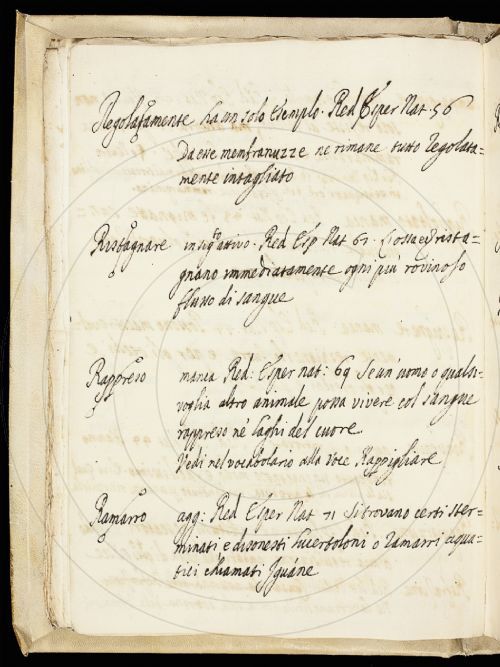 Regolatamente ha un solo esemplo. Red Esper Nat. 56
Da esse ne rimane tutto regolata=
mente intagliato
Ristagnare in sig. attivo. Red Esp Nat 61. rista=
gnano immediatamente ogni più rovinoso
flusso di sangue
Rappreso manca Red: Esper nat: 69 Se un' uomo o qualsi=
voglia altro animale possa vivere col sangue
rappreso ne' laghi del cuore
Vedi nel vocabolario alla voce Rappigliare
Ramarro agg: Red Esper Nat 71 Si trovano certi ster=
minati e disonesti lucertoloni o ramarri aqua=
tici chiamati Iguáne